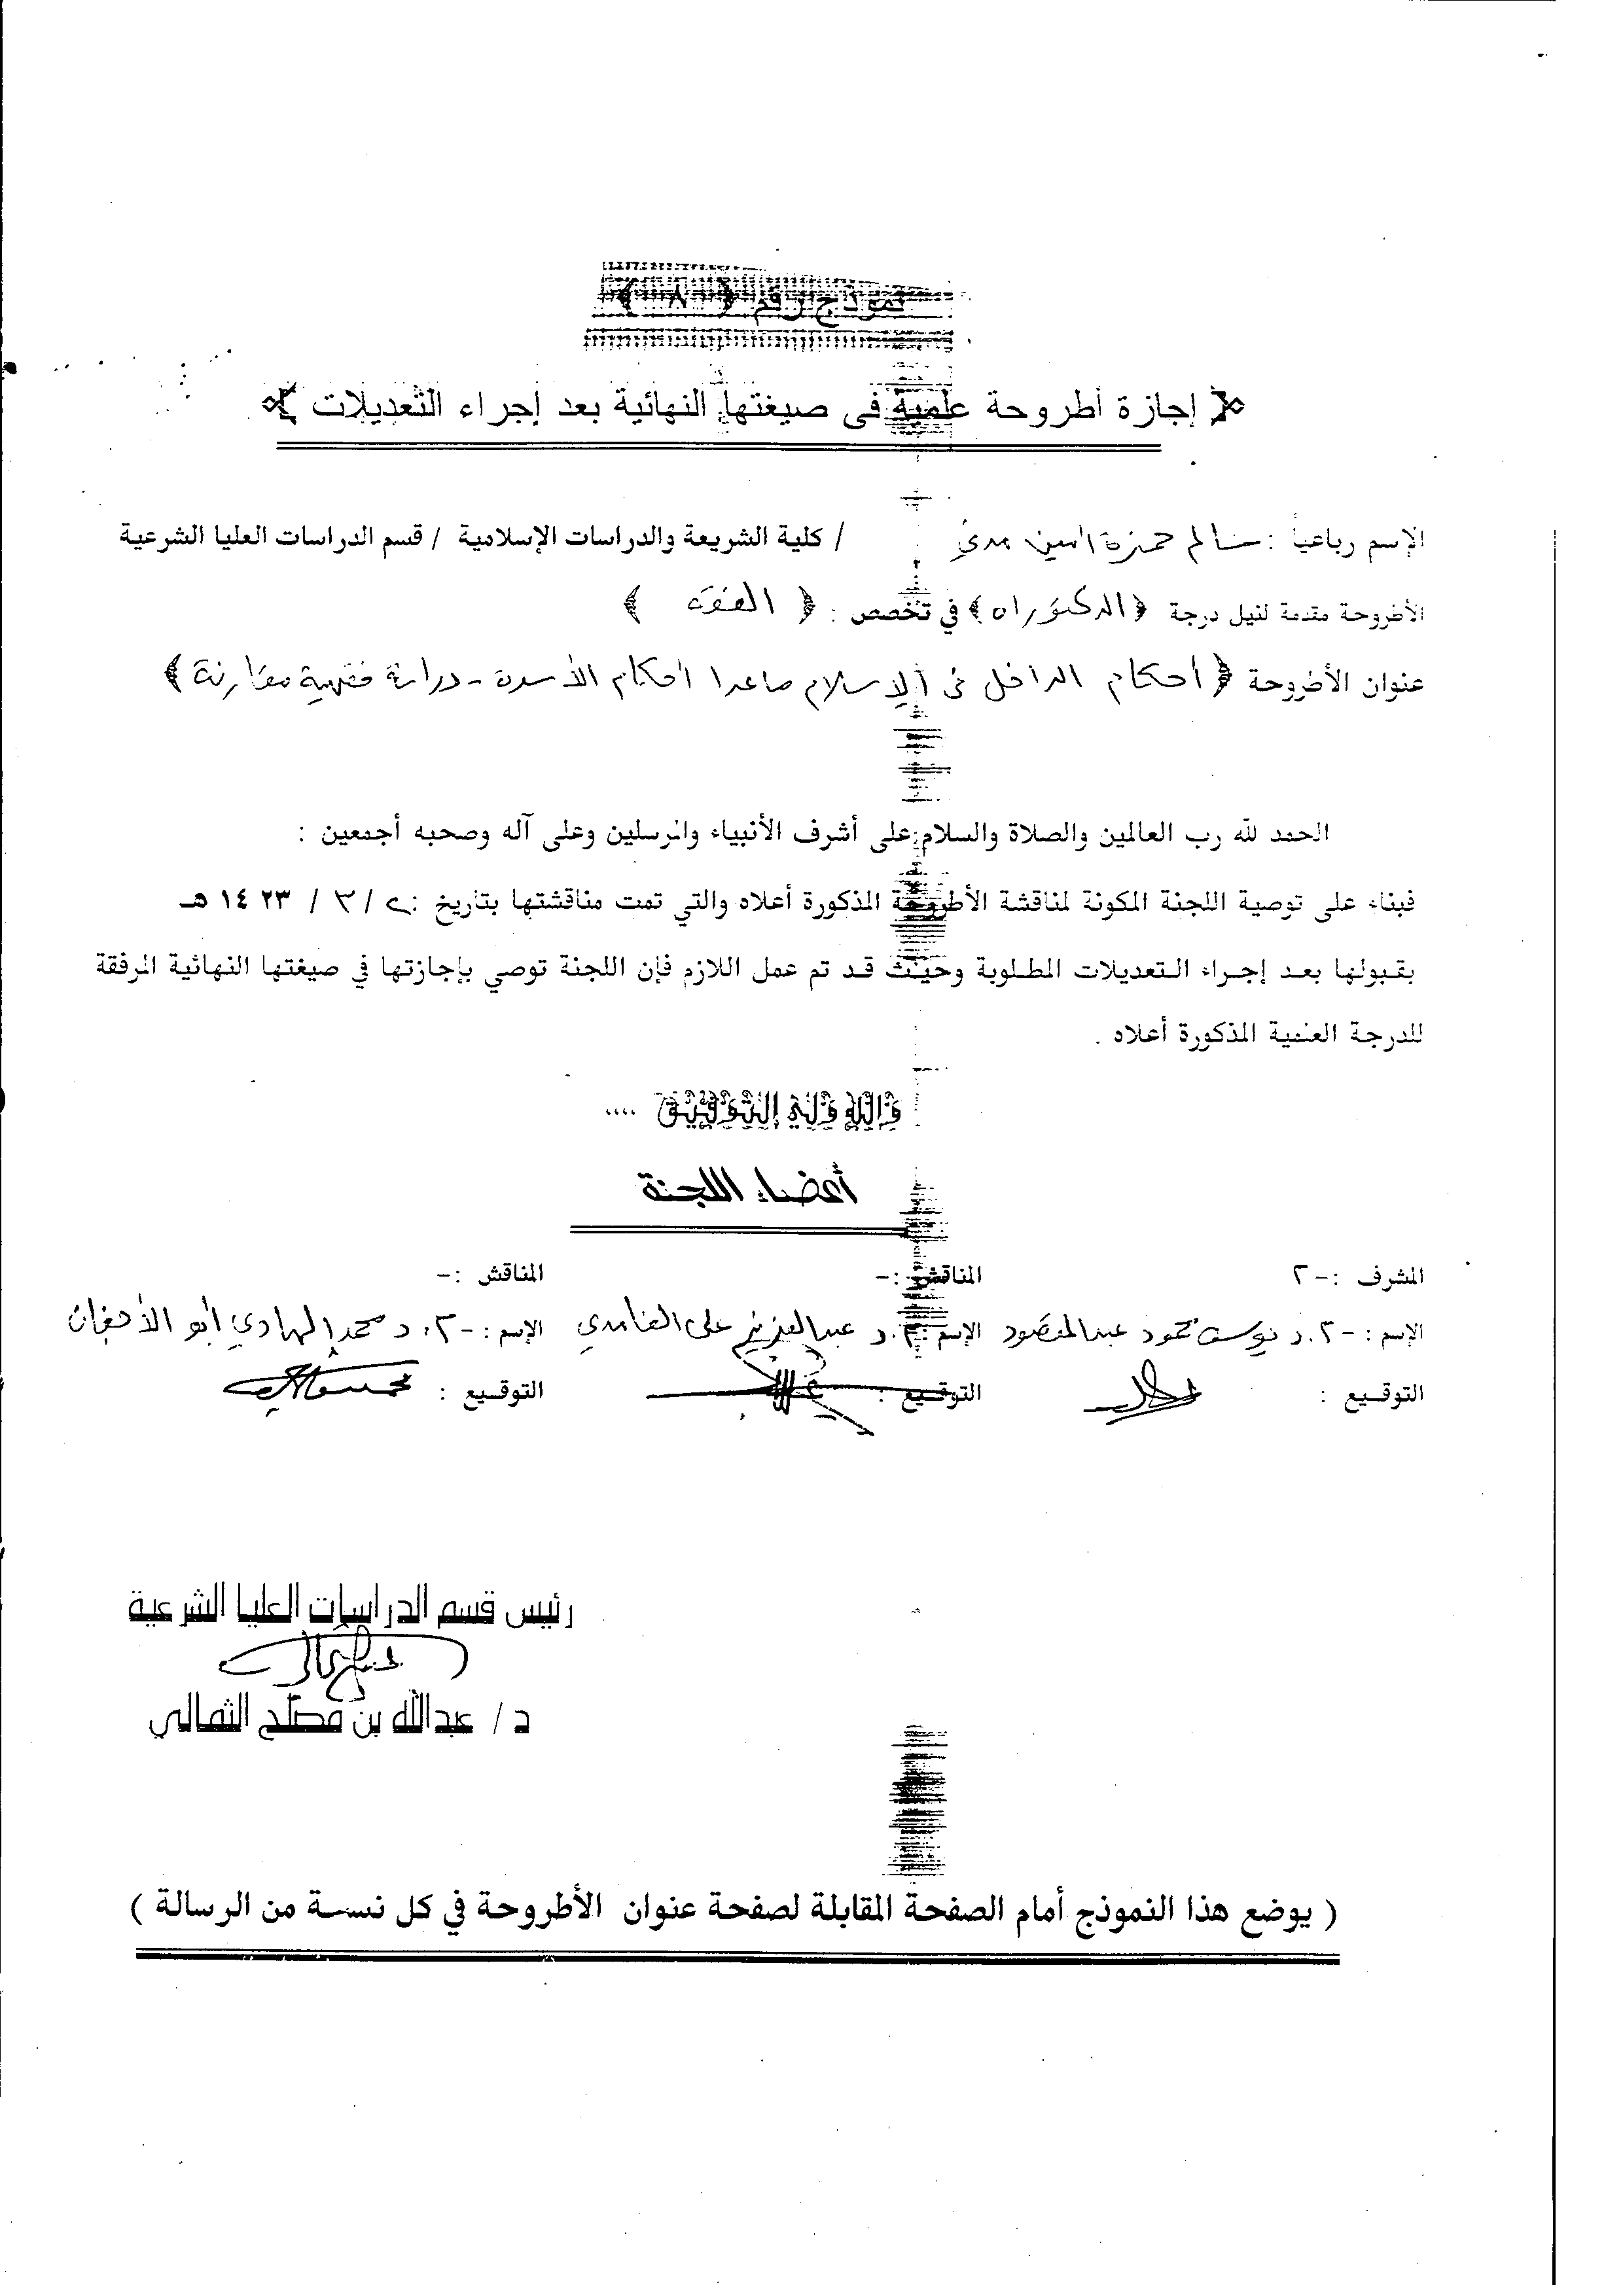 نموذج رقم ﴿ ٨ ﴾
إجازة أطروحة علمية في صيغتها النهائية بعد إجراء التعديلات
الإسم رباعياً : سالم حمزة أمين مدني / كلية الشريعة والدراسات الإسلامية / قسم الدراسات العليا الشرعية
الأطروحة مقدمة لنيل درجة ﴿ الدكتوراه ﴾ في تخصص : ﴿ الفقه ﴾
عنوان الأطروحة ﴿ أحكام الداخل في الإسلام ماعدا أحكام الأسرة - دراسة فقهية مقارنة ﴾
الحمد لله رب العالمين والصلاة والسلام على أشرف الأنبياء والمرسلين وعلى آله وصحبه أجمعين :
فبناء على توصية اللجنة المكونة لمناقشة الأطروحة المذكورة أعلاه والتي تمت مناقشتها بتاريخ : ٢ / ٣ / ١٤٢٣ هـ
بقبولها بعد إجراء التعديلات المطلوبة وحيث قد تم عمل اللازم فإن اللجنة توصي بإجازتها في صيغتها النهائية المرفقة
للدرجة العلمية المذكورة أعلاه .
والله ولي التوفيق ....
أعضاء اللجنة
المشرف :- المناقش :- المناقش :-
الإسم :- د يوسف محمود عبدالمقصود الإسم : د عبدالعزيز علي الغامدي الإسم :- د محمد الهادي أبو الأجفان
التوقيع : التوقيع : التوقيع :
رئيس قسم الدراسات العليا الشرعية
د / عبدالله بن مصلح الثمالي
( يوضع هذا النموذج أمام الصفحة المقابلة لصفحة عنوان الأطروحة في كل نسسة من الرسالة )